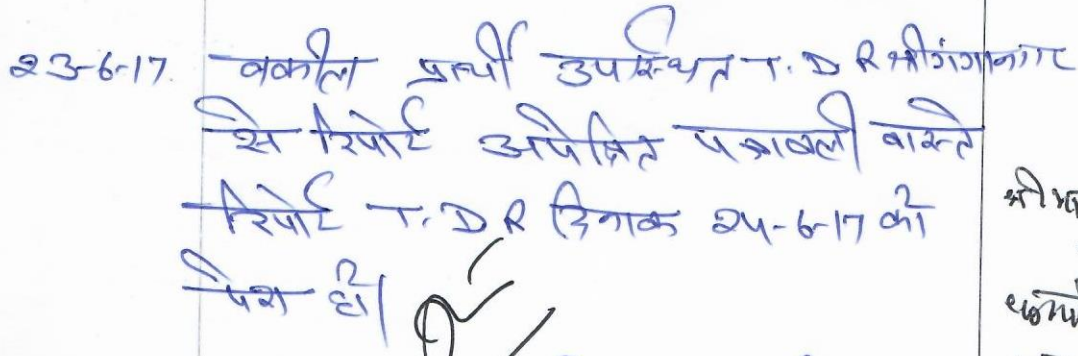 23-6-17. वकील प्रार्थी उपस्थित T. D R श्रीगंगानगर
से रिपोर्ट अपेक्षित पत्रावली वास्ते
रिपोर्ट T. D R दिनाक 24-6-17 को
पेश हो।